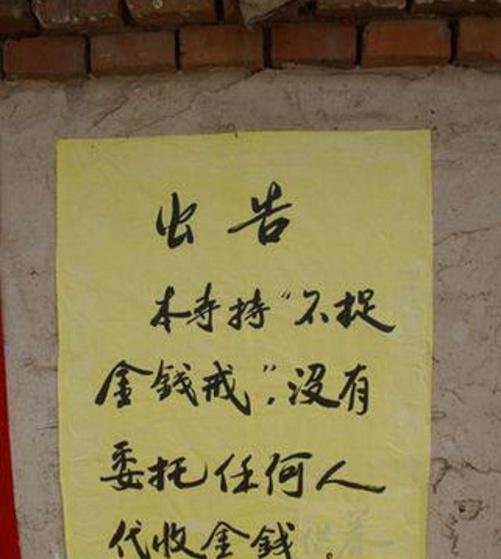 出告
本寺持“不捉
金錢戒”，没有
委托任何人
代收金錢。